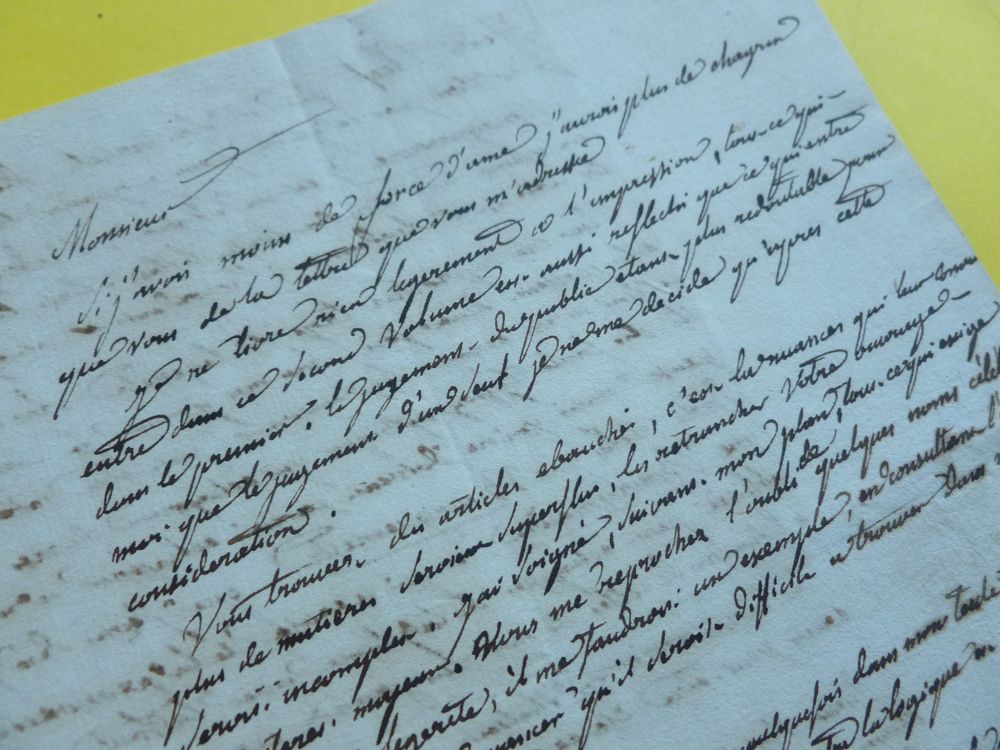 Monsieur
Si j'avois moins de force d'ame j'aurois plus de chagrin
que vous de la lettre que vous m'adressée
Je ne livre rien legerement a l'impression, tout ce qui
entre dans ce second volume est aussi reflechi que ce qui entre
dans le premier. le jugement du public etant plus redoutable pour
moi que le jugement d'un seul je ne me decide qu'apres cette
consideration.
Vous trouvez des articles ebauchés, c'est
plus de matieres seroient superflus, les retrancher votre ouvrage
seroit incomplet. j'ai soigné, suivant mon plan, tout ce qui exige
majeur. Vous me reprochez l'oubli de quelques noms
il me faudroit un exemple, en consultant
qu'il seroit difficile a trouver dans
quelquefois dans mon
la logique